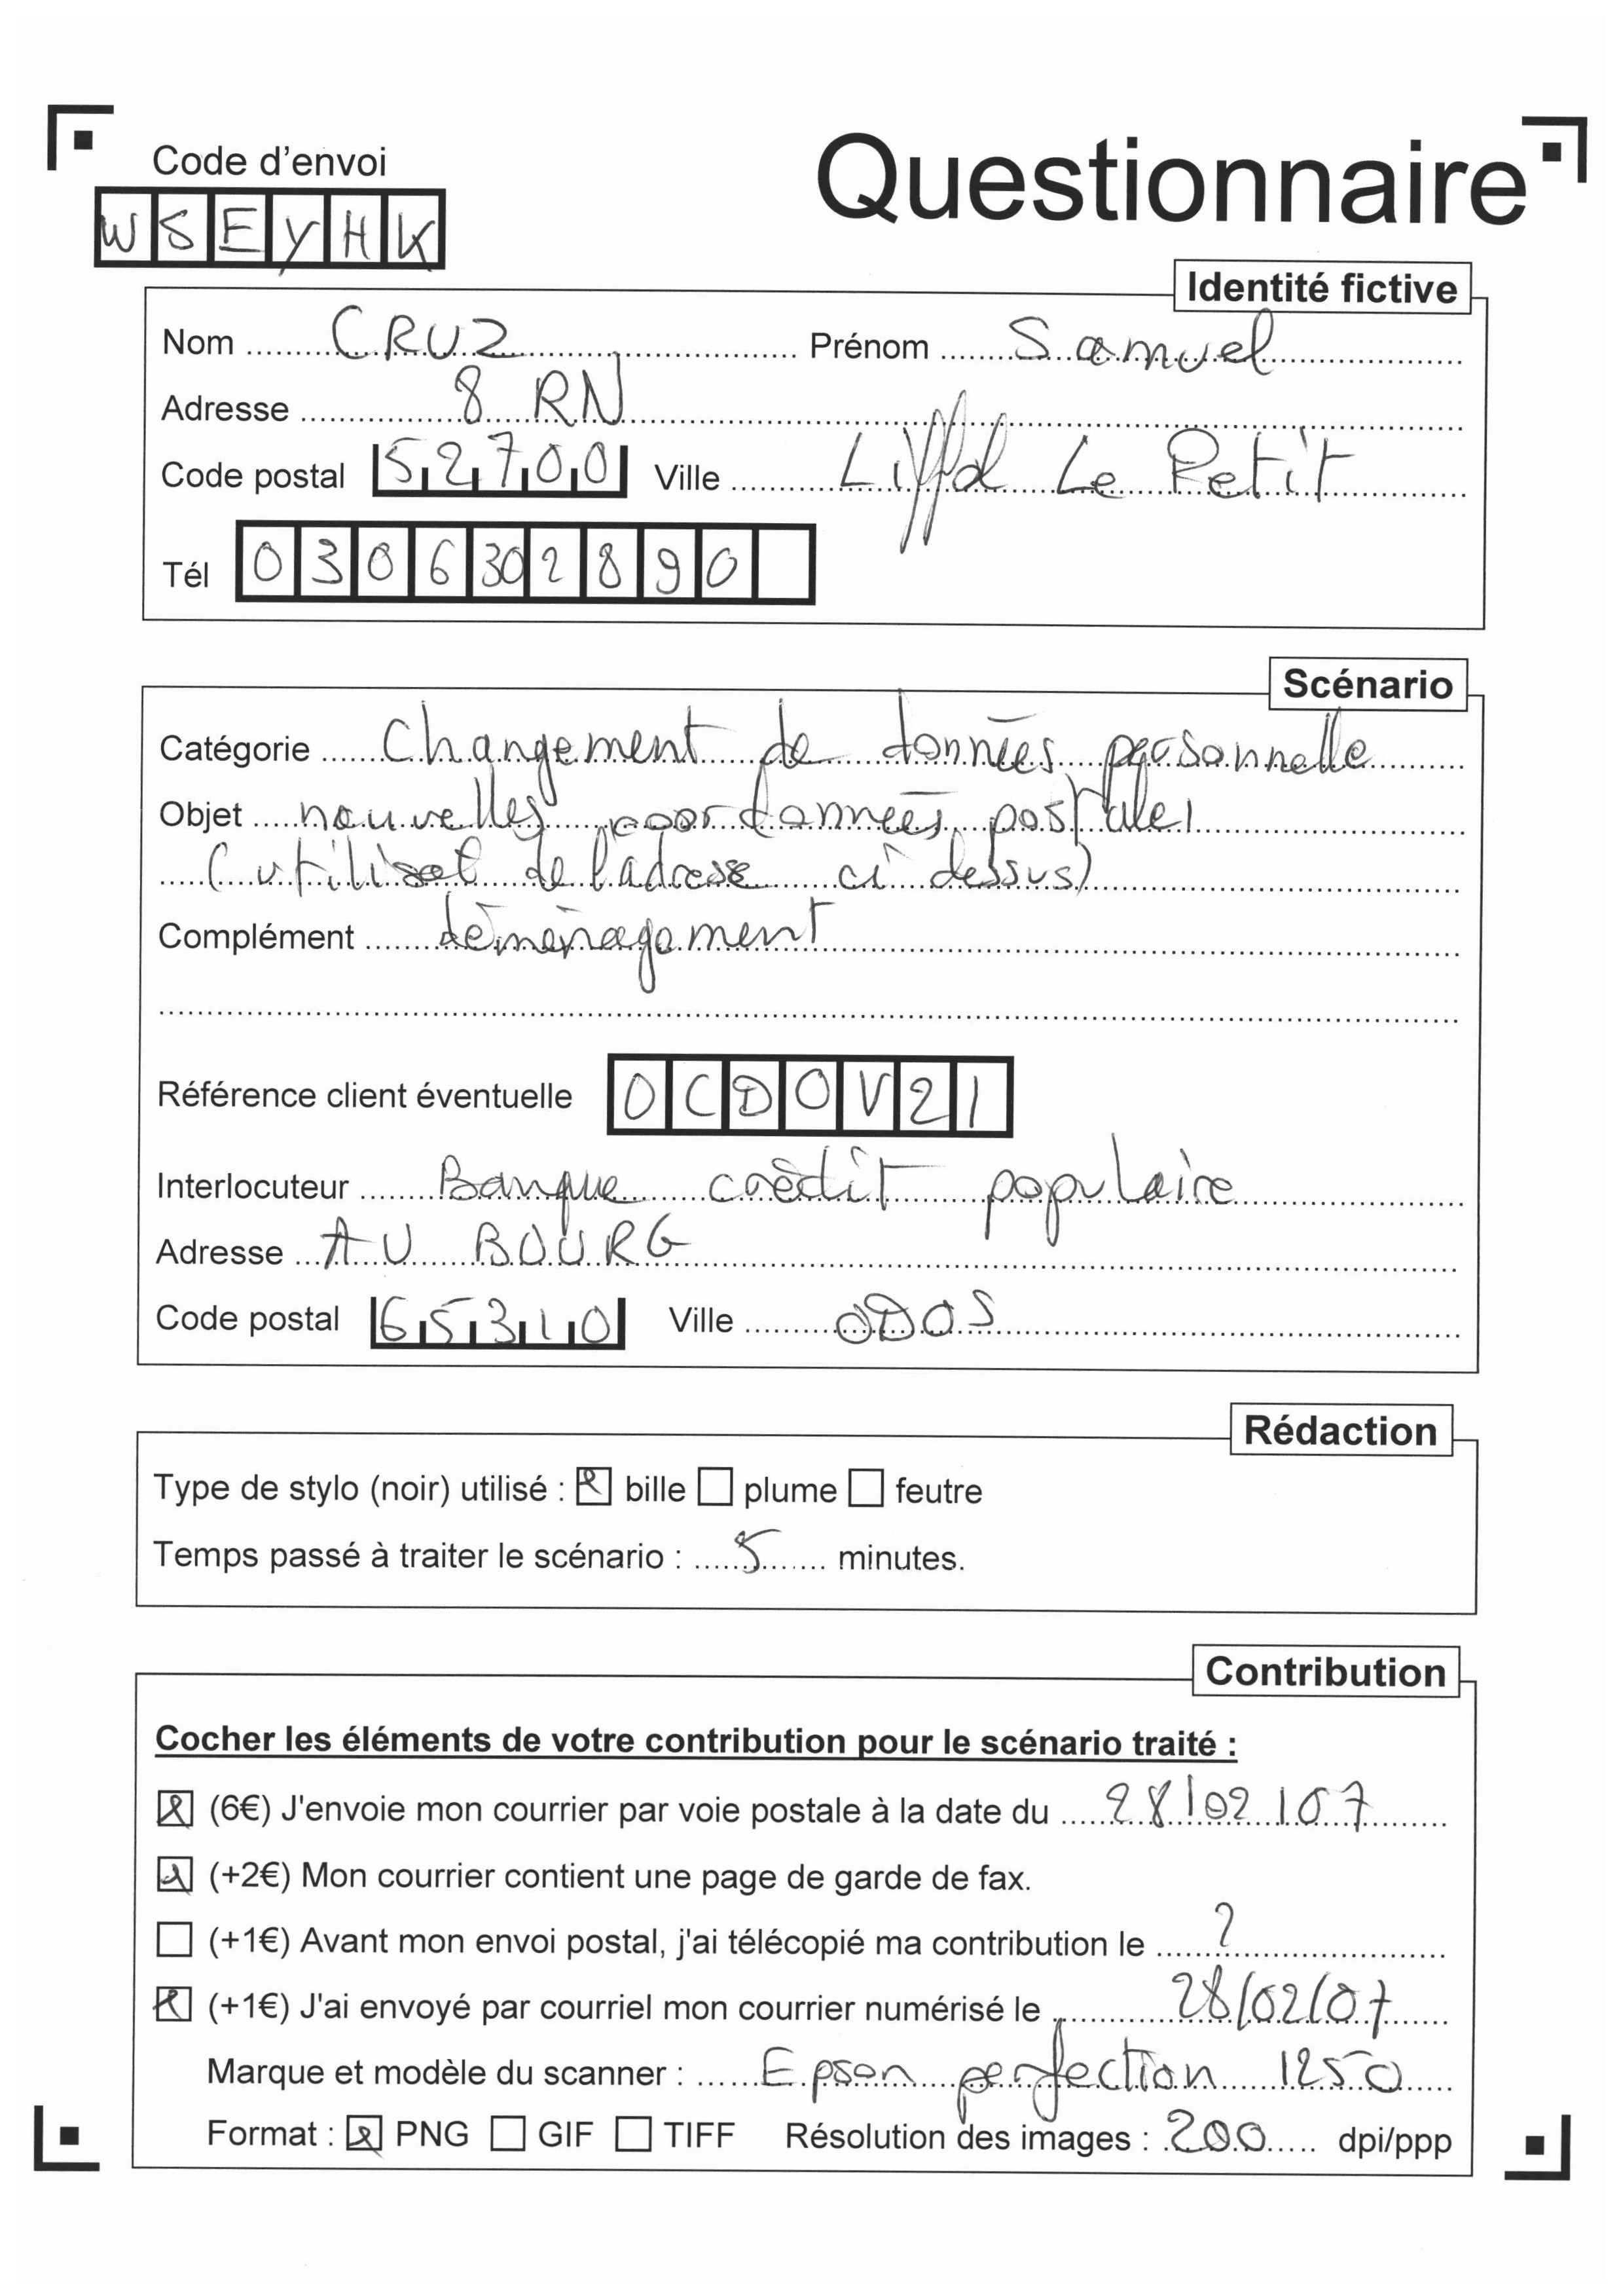 Code d'envoi
Questionnaire
WSEYHK
Identité fictive
Nom CRUZ Prénom Samuel
Adresse 8 RN
Code postal 52700 Ville Liffol Le Petit
Tél 0306302890
Scénario
Catégorie Changement de données personnelle
Objet nouvelles coordonnées postales
( de l'adresse ci dessus)
Complément déménagement
Référence client éventuelle OCDOV21
Interlocuteur Banque crédit populaire
Adresse AU BOURG
Code postal 65310 Ville ODOS
Rédaction
Type de stylo (noir) utilisé : bille plume feutre
Temps passé à traiter le scénario : 5 minutes.
Contribution
Cocher les éléments de votre contribution pour le scénario traité :
(6€) J'envoie mon courrier par voie postale à la date du 28/02/07
(+2€) Mon courrier contient une page de garde de fax.
(+1€) Avant mon envoi postal, j'ai télécopié ma contribution le ?
(+1€) J'ai envoyé par courriel mon courrier numérisé le 28/02/07
Marque et modèle du scanner : Epson perfection 1250
Format : PNG GIF TIFF Résolution des images : 200 dpi/ppp